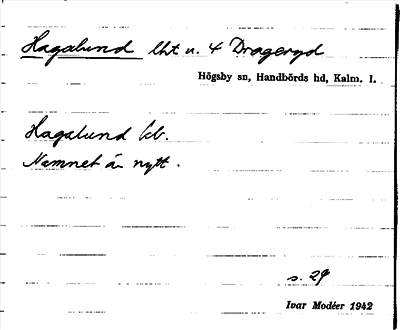 Hagalund lht u. 4 Drageryd
Högsby sn, Handbörds hd, Kalm. l.
Hagalund kb.
Namnet är nytt.
s. 29
Ivar Modéer 1942